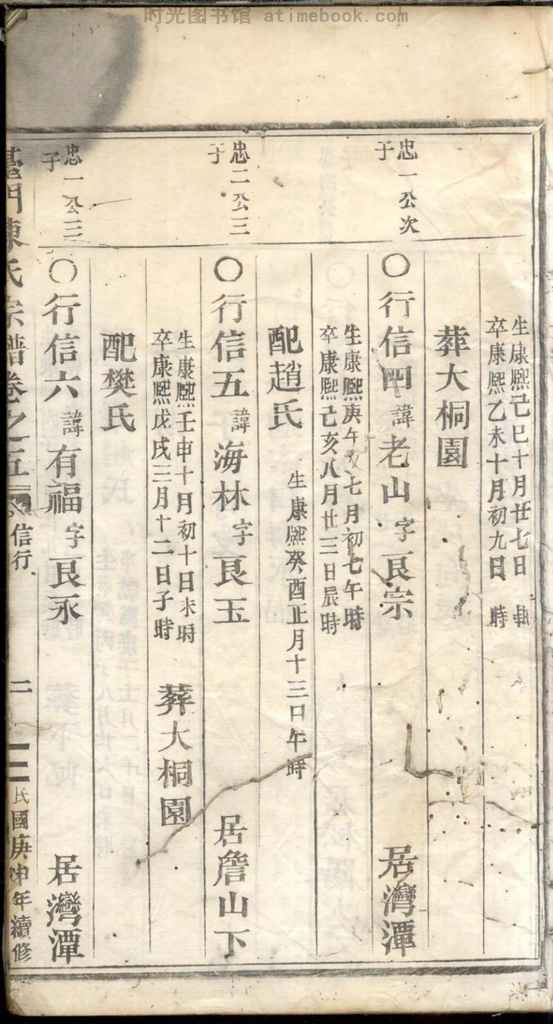 时光图书馆 atimebook.com
生康熙己巳十月廿七日 時
卒康熙乙未十月初九日 時
葬大桐園
忠一公次
子
○行信四 諱老山 字艮宗 居灣潭
生康熙庚午 七月初七午時
卒康熙己亥八月廿三日辰時
配趙氏 生康熙癸酉正月十三日午時
忠二公三
子
○行信五 諱海林 字艮玉 居詹山下
生康熙壬申十月初十日未時
卒康熙戊戌三月十二日子時
葬大桐園
配樊氏
忠一公三
子
○行信六 諱有福 字艮永 居灣潭
門陳氏宗譜卷之五 信行 二 民國庚申年續修